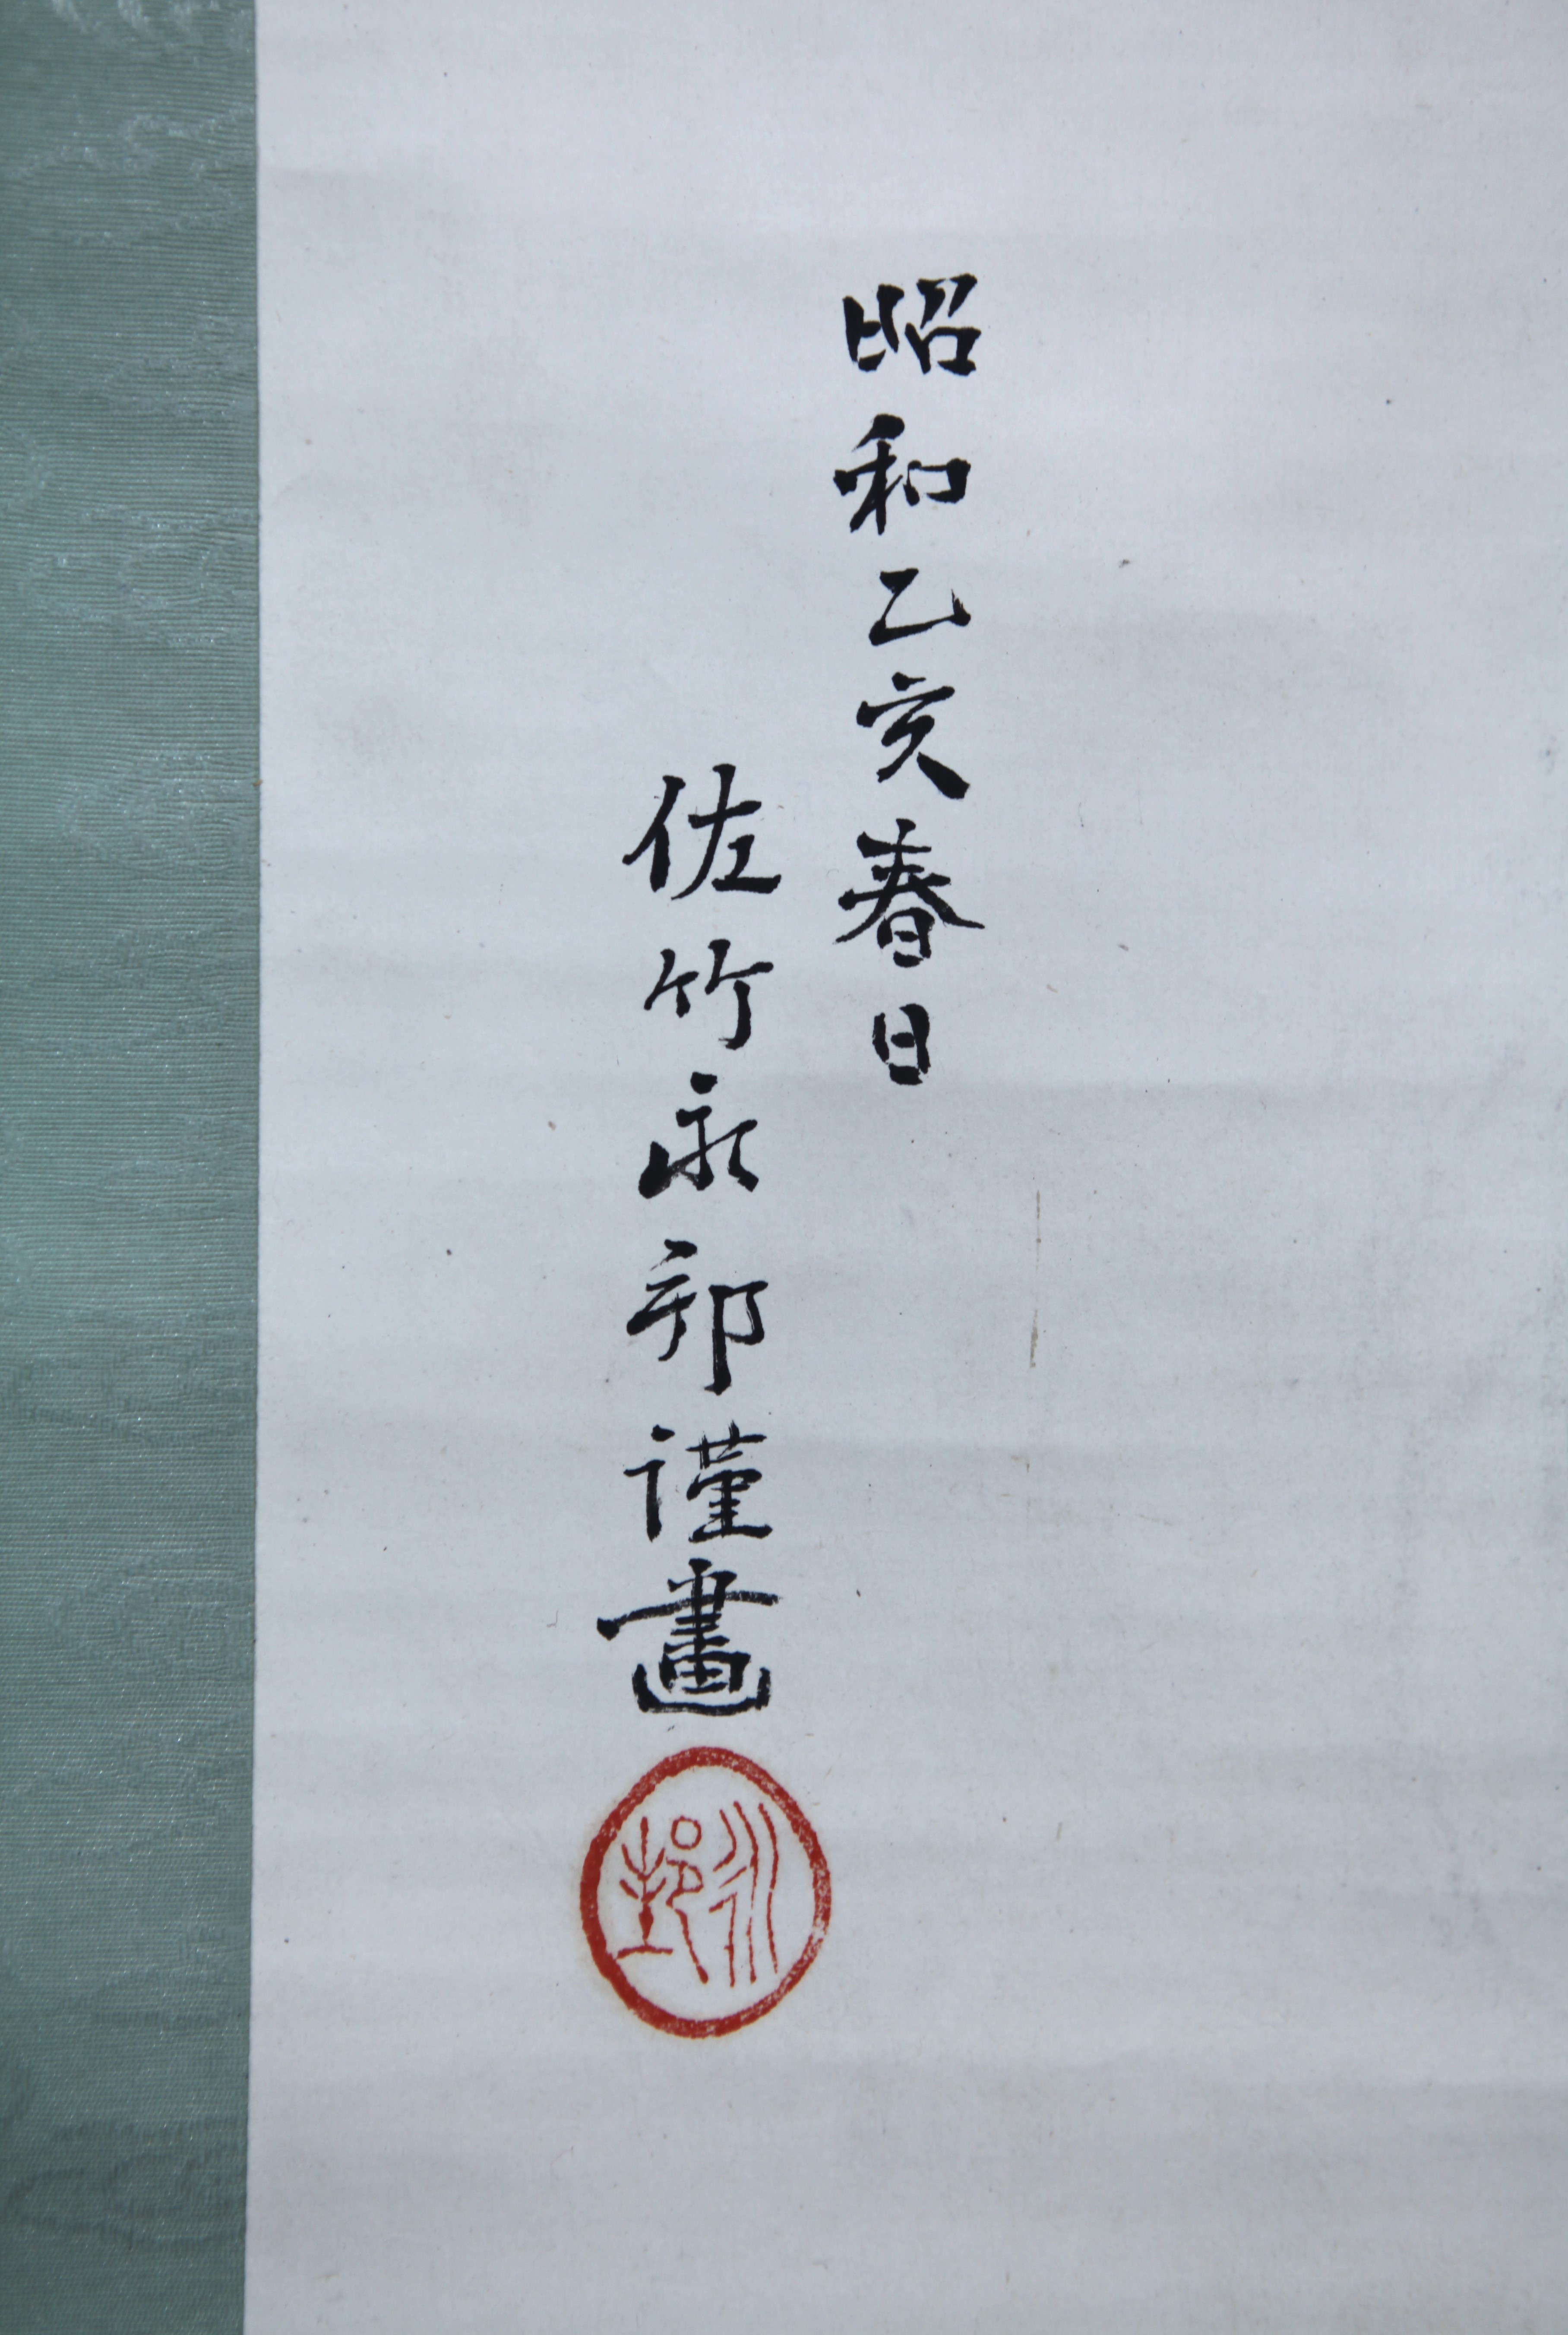 昭和乙亥春日
佐竹永邨謹畫
永邨